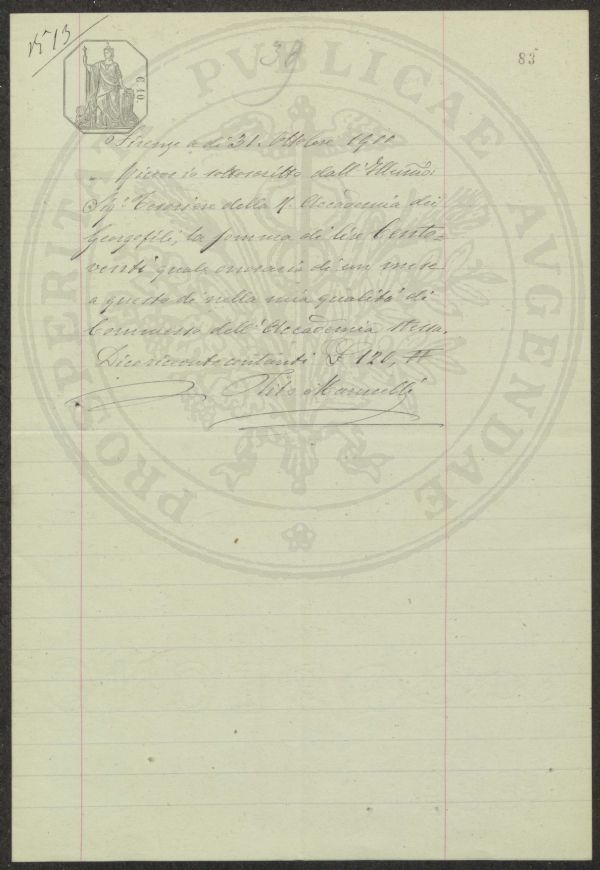 N° 13
38
83
C. 10.
PROSPERITATI PVBLICAE AVGENDAE
Firenze a dì 31. Ottobre 1911
Ricevo io sottoscritto dall' Illumo:
Sig: Tesoriere della R. Accademia dei
Georgofili, la somma di lire Cento=
venti quale onorario di un mese
a questo dì nella mia qualità di
Commesso dell' Accademia stessa.
Dico ricevute contanti £ 120, #
Tito Marucelli